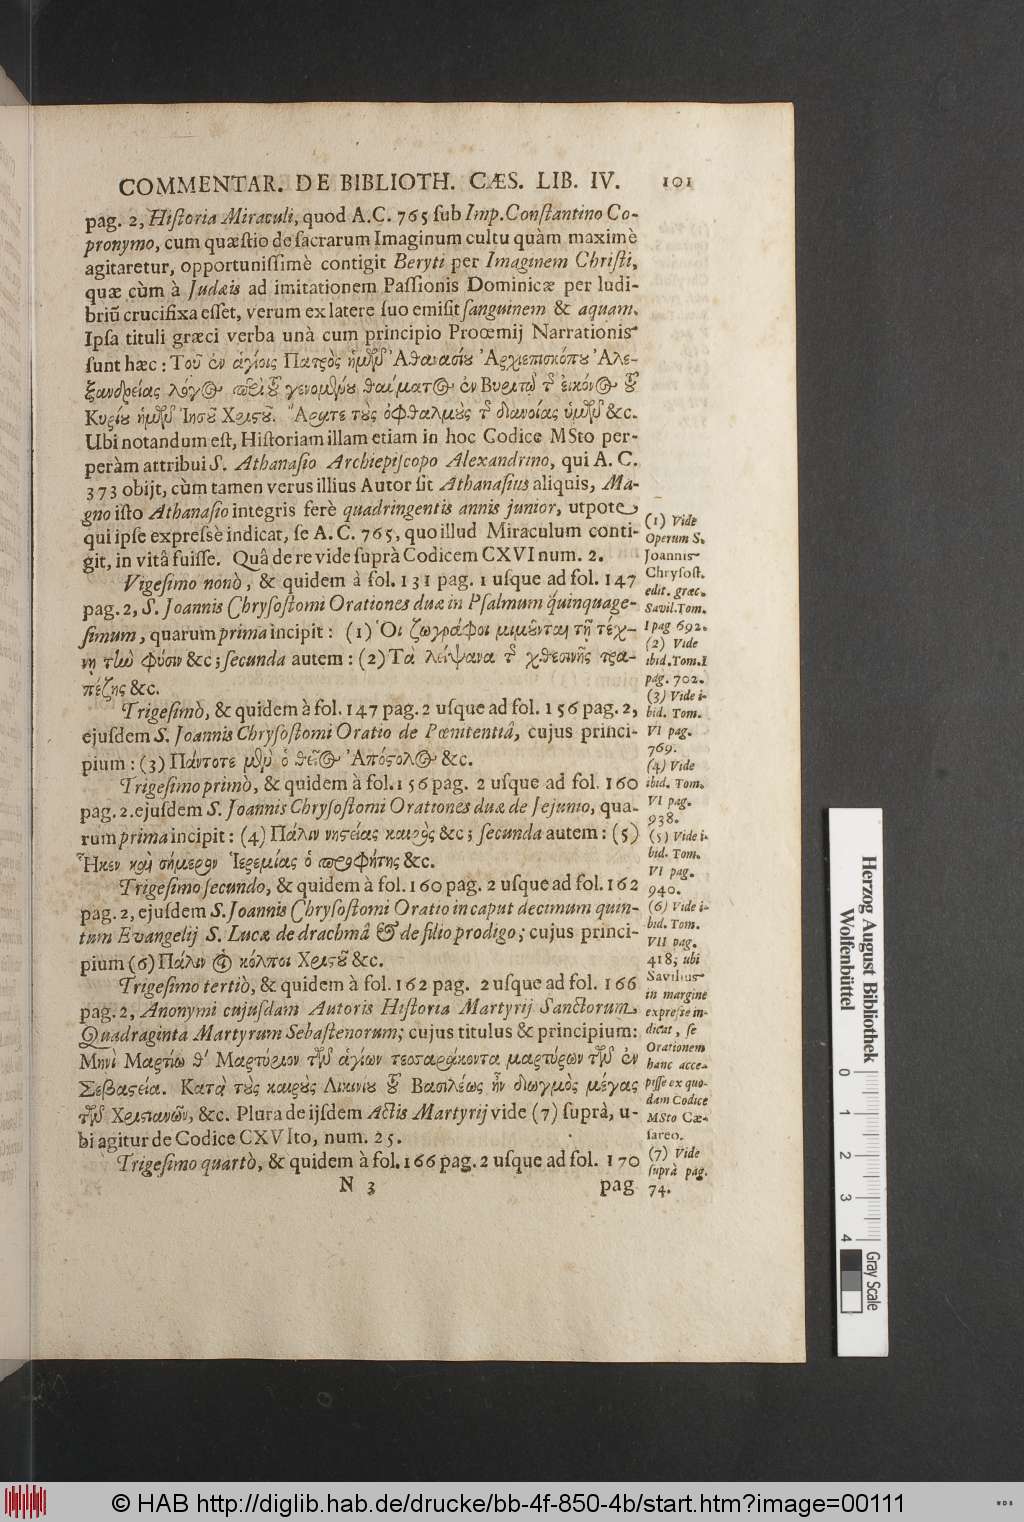 COMMENTAR. DE BIBLIOTH. CÆS. LIB. IV. 101
pag. 2, Hiſtoria Miraculi, quod A.C. 765 ſub Imp. Conſtantino Co-
pronymo, cum quæſtio de ſacrarum Imaginum cultu quàm maximè
agitaretur, opportuniſſimè contigit Beryti per Imaginem Chriſti,
quæ cùm à Judæis ad imitationem Paſſionis Dominicæ per ludi-
briũ crucifixa eſſet, verum ex latere ſuo emiſit ſanguinem & aquam.
Ipſa tituli græci verba unà cum principio Proœmij Narrationis
ſunt hæc: Τοῦ ἐν ἁγίοις Πατρὸς ἡμῶν Ἀθανασίου Ἀρχιεπισκόπου Ἀλε-
ξανδρείας λόγος περὶ τοῦ γενομένου θαύματος ἐν Βυριτῷ τῆς εἰκόνος τοῦ
Κυρίου ἡμῶν Ἰησοῦ Χριστοῦ. Ἄρατε τοὺς ὀφθαλμοὺς τῆς διανοίας ὑμῶν &c.
Ubi notandum eſt, Hiſtoriam illam etiam in hoc Codice MSto per-
peràm attribui S. Athanaſio Archiepiſcopo Alexandrino, qui A. C.
373 obijt, cùm tamen verus illius Autor ſit Athanaſius aliquis, Ma-
gno iſto Athanaſio integris ferè quadringentis annis junior, utpote
qui ipſe expreſsè indicat, ſe A. C. 765, quo illud Miraculum conti-
git, in vitâ fuiſſe. Quâ de re vide ſuprà Codicem CXVI num. 2.
Vigeſimo nonò, & quidem à fol. 131 pag. 1 uſque ad fol. 147
pag. 2, S. Joannis Chryſoſtomi Orationes duæ in Pſalmum quinquage-
ſimum, quarum prima incipit: (1) Οἱ ζωγράφοι μιμοῦνται τῇ τέχ-
νῃ τὴν φύσιν &c; ſecunda autem: (2) Τὰ λείψανα τῆς χθεσινῆς τρα-
πέζης &c.
Trigeſimò, & quidem à fol. 147 pag. 2 uſque ad fol. 156 pag. 2,
ejuſdem S. Joannis Chryſoſtomi Oratio de Pœnitentiâ, cujus princi-
pium: (3) Πάντοτε μὲν ὁ θεῖος Ἀπόστολος &c.
Trigeſimo primò, & quidem à fol. 156 pag. 2 uſque ad fol. 160
pag. 2. ejuſdem S. Joannis Chryſoſtomi Orationes duæ de Jejunio, qua-
rum prima incipit: (4) Πάλιν νηστείας καιρὸς &c; ſecunda autem: (5)
Ἧκεν καὶ σήμερον Ἱερεμίας ὁ προφήτης &c.
Trigeſimo ſecundo, & quidem à fol. 160 pag. 2 uſque ad fol. 162
pag. 2, ejuſdem S. Joannis Chryſoſtomi Oratio in caput decimum quin-
tum Evangelij S. Lucæ de drachmâ & de filio prodigo; cujus princi-
pium (6) Πάλιν οἱ κόλποι Χριστοῦ &c.
Trigeſimo tertiò, & quidem à fol. 162 pag. 2 uſque ad fol. 166
pag. 2, Anonymi cujuſdam Autoris Hiſtoria Martyrij Sanctorum
Quadraginta Martyrum Sebaſtenorum; cujus titulus & principium:
Μηνὶ Μαρτίῳ θʹ Μαρτύριον τῶν ἁγίων τεσσαράκοντα μαρτύρων τῶν ἐν
Σεβαστείᾳ. Κατὰ τοὺς καιροὺς Λικινίου τοῦ Βασιλέως ἦν διωγμὸς μέγας
τῶν Χριστιανῶν, &c. Plura de ijſdem Actis Martyrij vide (7) ſuprà, u-
bi agitur de Codice CXVIto, num. 25.
Trigeſimo quartò, & quidem à fol. 166 pag. 2 uſque ad fol. 170
N 3 pag
(1) Vide
Operum S.
Joannis
Chryſoſt.
edit. græc.
Savil. Tom.
I pag 692.
(2) Vide
ibid. Tom. I
pag. 702.
(3) Vide i-
bid. Tom.
VI pag.
769.
(4) Vide
ibid. Tom.
VI pag.
938.
(5) Vide i-
bid. Tom.
VI pag.
940.
(6) Vide i-
bid. Tom.
VII pag.
418; ubi
Savilius
in margine
expreſse in-
dicat, ſe
Orationem
hanc acce-
piſſe ex quo-
dam Codice
MSto Cæ-
ſareo.
(7) Vide
ſuprà pag.
74.
Herzog August Bibliothek
Wolfenbüttel
0 1 2 3 4
Gray Scale
© HAB http://diglib.hab.de/drucke/bb-4f-850-4b/start.htm?image=00111